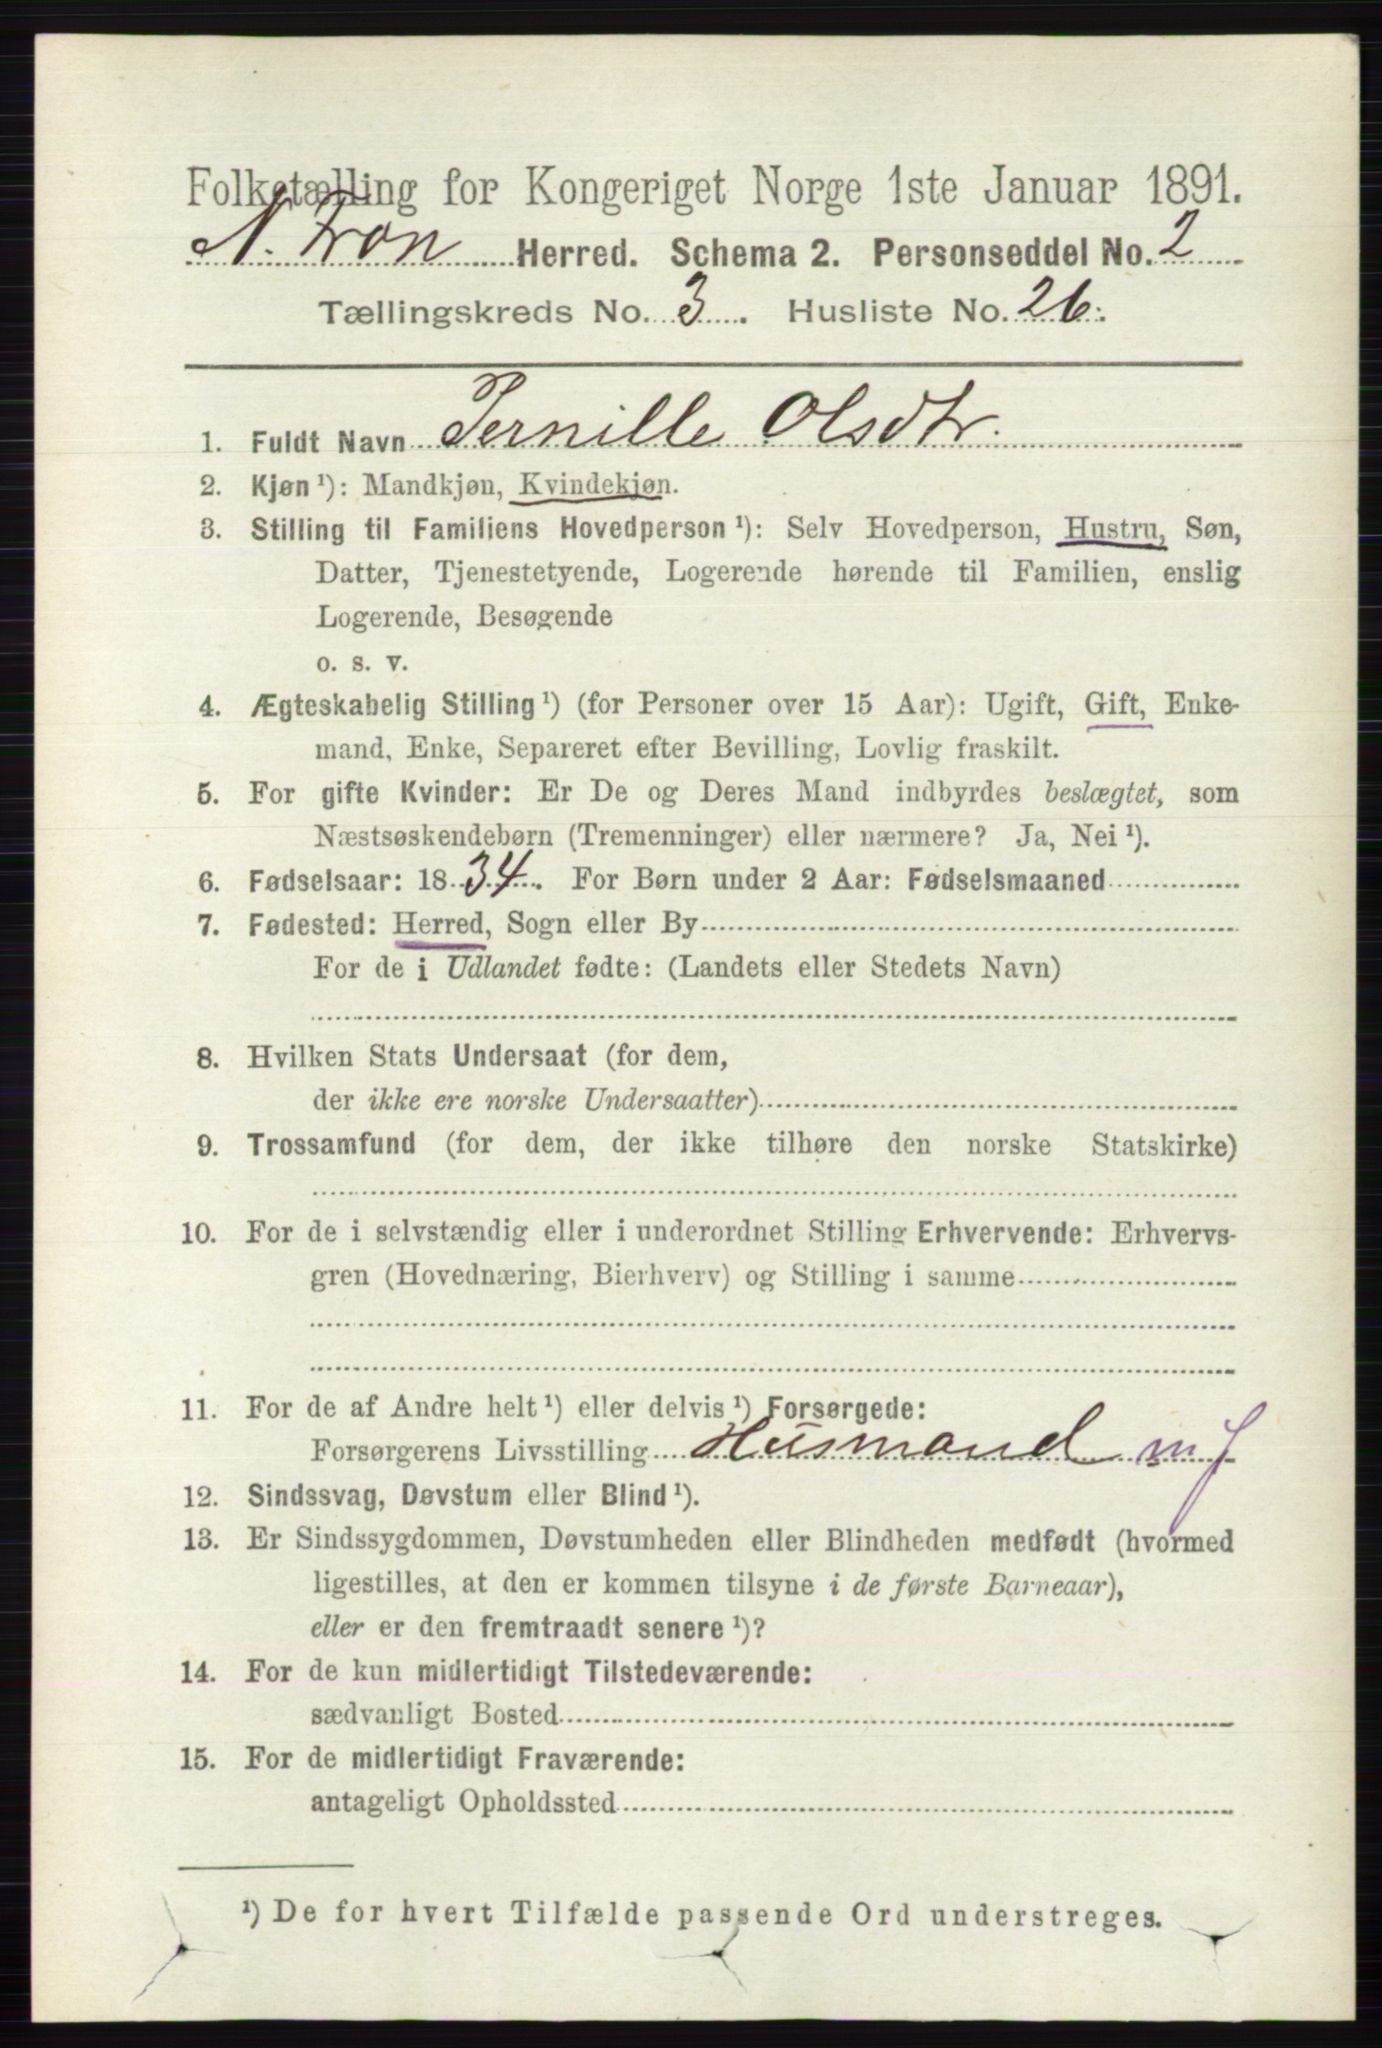 Folketælling for Kongeriget Norge 1ste Januar 1891.
N. Fron Herred. Schema 2. Personseddel No. 2
Tællingskreds No. 3. Husliste No. 26.
1. Fuldt Navn Pernille Olsdtr.
2. Kjøn ¹): Mandkjøn, Kvindekjøn.
3. Stilling til Familiens Hovedperson ¹): Selv Hovedperson, Hustru, Søn,
Datter, Tjenestetyende, Logerende hørende til Familien, enslig
Logerende, Besøgende
o. s. v.
4. Ægteskabelig Stilling ¹) (for Personer over 15 Aar): Ugift, Gift, Enke-
mand, Enke, Separeret efter Bevilling, Lovlig fraskilt.
5. For gifte Kvinder: Er De og Deres Mand indbyrdes beslægtet, som
Næstsøskendebørn (Tremenninger) eller nærmere? Ja, Nei ¹).
6. Fødselsaar: 1834. For Børn under 2 Aar: Fødselsmaaned
7. Fødested: Herred, Sogn eller By
For de i Udlandet fødte: (Landets eller Stedets Navn)
8. Hvilken Stats Undersaat (for dem,
der ikke ere norske Undersaatter)
9. Trossamfund (for dem, der ikke tilhøre den norske Statskirke)
10. For de i selvstændig eller i underordnet Stilling Erhvervende: Erhvervs-
gren (Hovednæring, Bierhverv) og Stilling i samme
11. For de af Andre helt ¹) eller delvis ¹) Forsørgede:
Forsørgerens Livsstilling Husmand m J
12. Sindssvag, Døvstum eller Blind ¹).
13. Er Sindssygdommen, Døvstumheden eller Blindheden medfødt (hvormed
ligestilles, at den er kommen tilsyne i de første Barneaar),
eller er den fremtraadt senere ¹)?
14. For de kun midlertidigt Tilstedeværende:
sædvanligt Bosted
15. For de midlertidigt Fraværende:
antageligt Opholdssted
¹) De for hvert Tilfælde passende Ord understreges.